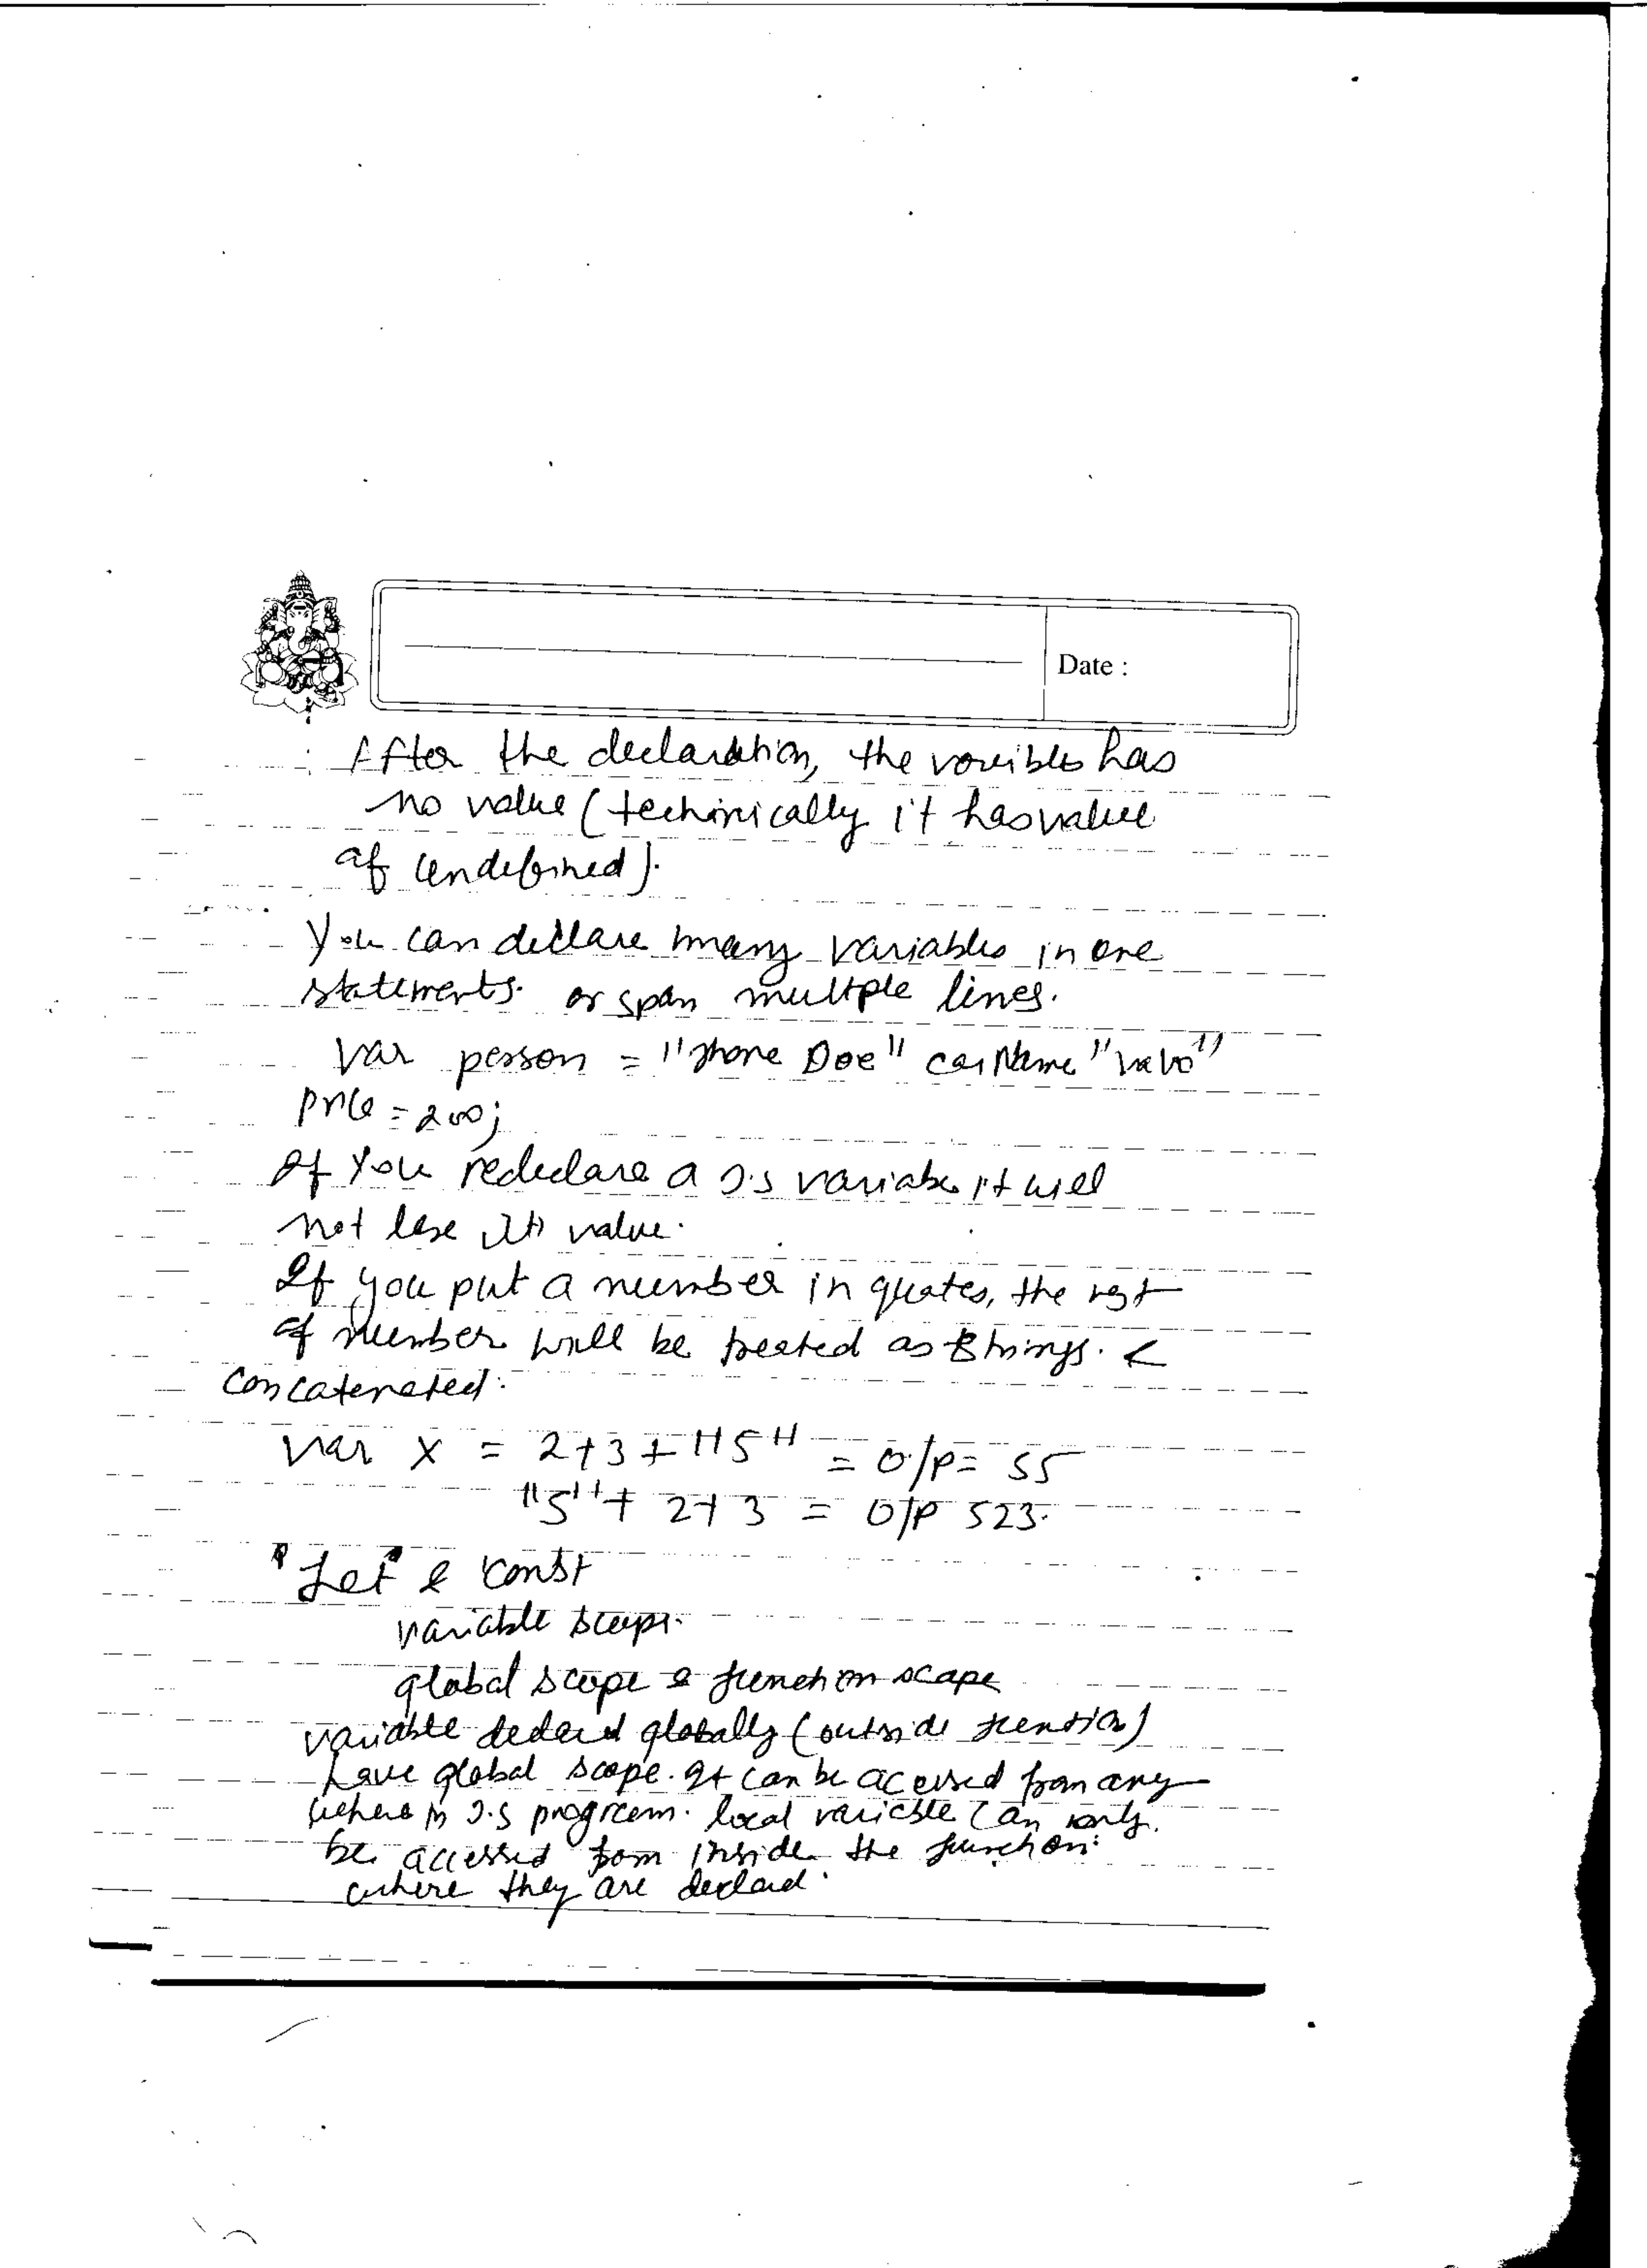 Date :
After the declaration, the varibles has
no value (techinically it has value
of undefined).
You can declare many variables in one
statements. or span multple lines.
Var person = "Jhone Doe" carName "Volvo"
price = 200;
If you redeclare a J.S variabe it will
not lose its value.
If you put a number in quotes, the rest
of number will be treated as Strings. &
Concatenated.
Var x = 2+3+"5" = O/P = 55
"5"+ 2+3 = O/P 523.
Let & Const
Variable scope.
global scope & function scope
variable declared globally (outside function)
have global scope. It can be accessed from any
where in J.S program. local variable can only
be accessed from inside the function
where they are declard.